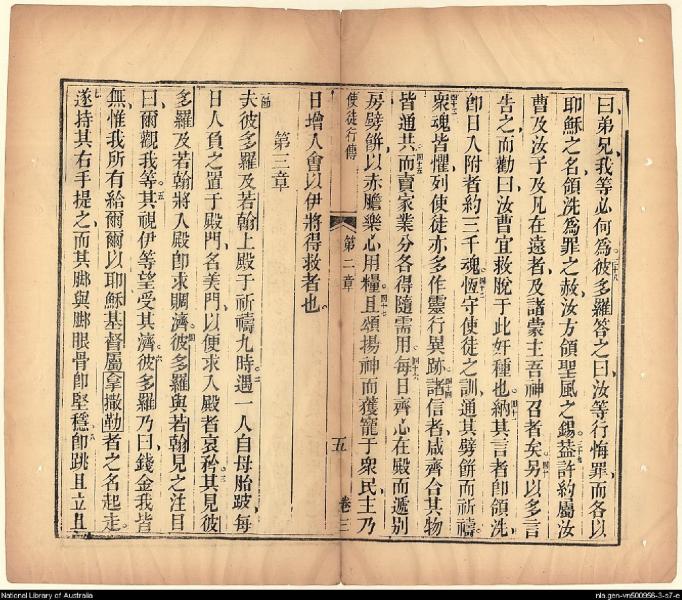 曰弟兄我等必何為。三十八彼多羅答之曰汝等行悔罪而各以
耶穌之名領洗為罪之赦汝方領聖風之錫。三十九蓋許約屬汝
曹及汝子及凡在遠者及諸蒙主吾神召者矣。四十另以多言
告之而勸曰汝曹宜救脫于此奸種也。四十一納其言者即領洗
即日入附者約三千魂。四十二恆守使徒之訓通其劈餅而祈禱。
四十三眾魂皆懼列使徒亦多作靈行異跡。四十四諸信者咸齊合其物
皆通共。四十五而賣家業分各得隨需用。四十六每日齊心在殿而遞別
房劈餅以赤膽樂心用糧。四十七且頌揚神而獲寵于眾民主乃
使徒行傳 第二章 五 卷三
日增入會以伊將得救者也。
第三章
一節夫彼多羅及若翰上殿于祈禱九時。二遇一人自母胎跛每
日人負之置于殿門名美門以便求入殿者哀矜。三其見彼
多羅及若翰將入殿即求賙濟。四彼多羅與若翰見之注目
曰爾觀我等。五其視伊等望受其濟。六彼多羅乃曰錢金我皆
無惟我所有給爾爾以耶穌基督屬拿撒勒者之名起走。
七遂持其右手提之而其腳與腳眼骨即堅穩。八即跳且立且
National Library of Australia
nla.gen-vn500956-3-s7-e